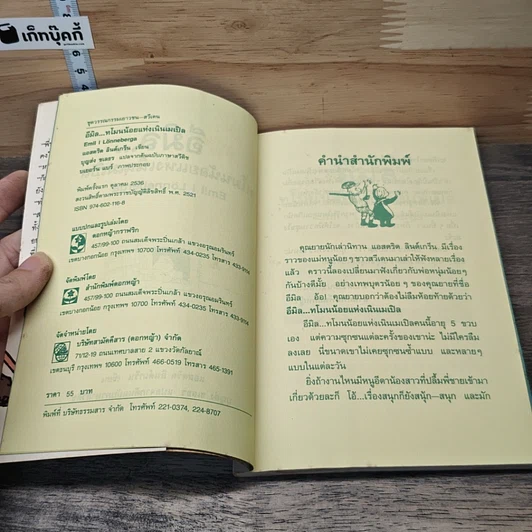 เก็ทบุ๊คกี้
ชุดวรรณกรรมเยาวชน—สวีเดน
อีมิล...ทโมนน้อยแห่งเนินเมเปิล
Emil i Lönneberga
แอสตริด ลินด์เกร็น เขียน
บุญส่ง ชเลธร แปลจากต้นฉบับภาษาสวีดิช
พิมพ์ครั้งแรก ตุลาคม 2536
สงวนลิขสิทธิ์ตามพระราชบัญญัติลิขสิทธิ์ พ.ศ. 2521
ISBN 974-602-116-8
แบบปกและรูปเล่มโดย
ดอกหญ้ากราฟริก
457/99-100 ถนนสมเด็จพระปิ่นเกล้า แขวงอรุณอมรินทร์
เขตบางกอกน้อย กรุงเทพฯ 10700 โทรศัพท์ 434-0235 โทรสาร 435-9116
จัดพิมพ์โดย
สำนักพิมพ์ดอกหญ้า
457/99-100 ถนนสมเด็จพระปิ่นเกล้า แขวงอรุณอมรินทร์
เขตบางกอกน้อย กรุงเทพฯ 10700 โทรศัพท์ 434-0235 โทรสาร 435-9116
จัดจำหน่ายโดย
บริษัทสามัคคีสาร (ดอกหญ้า) จำกัด
71/12-19 ถนนเทศบาลสาย 2 แขวงวัดกัลยาณ์
เขตธนบุรี กรุงเทพฯ 10600 โทรศัพท์ 466-0519 โทรสาร 465-1391
ราคา 55 บาท
พิมพ์ที่ บริษัทธรรมสาร จำกัด โทรศัพท์ 221-0374, 224-8707
คำนำสำนักพิมพ์
คุณยายนักเล่านิทาน แอสตริด ลินด์เกร็น มีเรื่อง
ราวของแม่หนูน้อยๆ ชาวสวีเดนมาเล่าให้ฟังหลายเรื่อง
แล้ว คราวนี้ลองเปลี่ยนมาฟังเกี่ยวกับพ่อหนุ่มน้อยๆ
กันบ้างดีมั้ย อย่างเทพบุตรน้อยๆ ของคุณยายที่ชื่อ
อีมิล อ้อ! คุณยายบอกว่าต้องไม่ลืมห้อยท้ายด้วยว่า
อีมิล...ทโมนน้อยแห่งเนินเมเปิล
อีมิล...ทโมนน้อยแห่งเนินเมเปิลคนนี้อายุ 5 ขวบ
เอง แต่ความซุกซนแต่ละครั้งของเขาน่ะ ไม่มีใครลืม
ลงเลย นี่ขนาดเขาไม่เคยซุกซนซ้ำแบบ และหลายๆ
แบบในแต่ละวัน
ยิ่งถ้างานไหนมีหนูอีดาน้องสาวที่ปลื้มพี่ชายเข้ามา
เกี่ยวด้วยละก็ โอ้...เรื่องสนุกก็ยิ่งสนุ้ก—สนุก และมัก